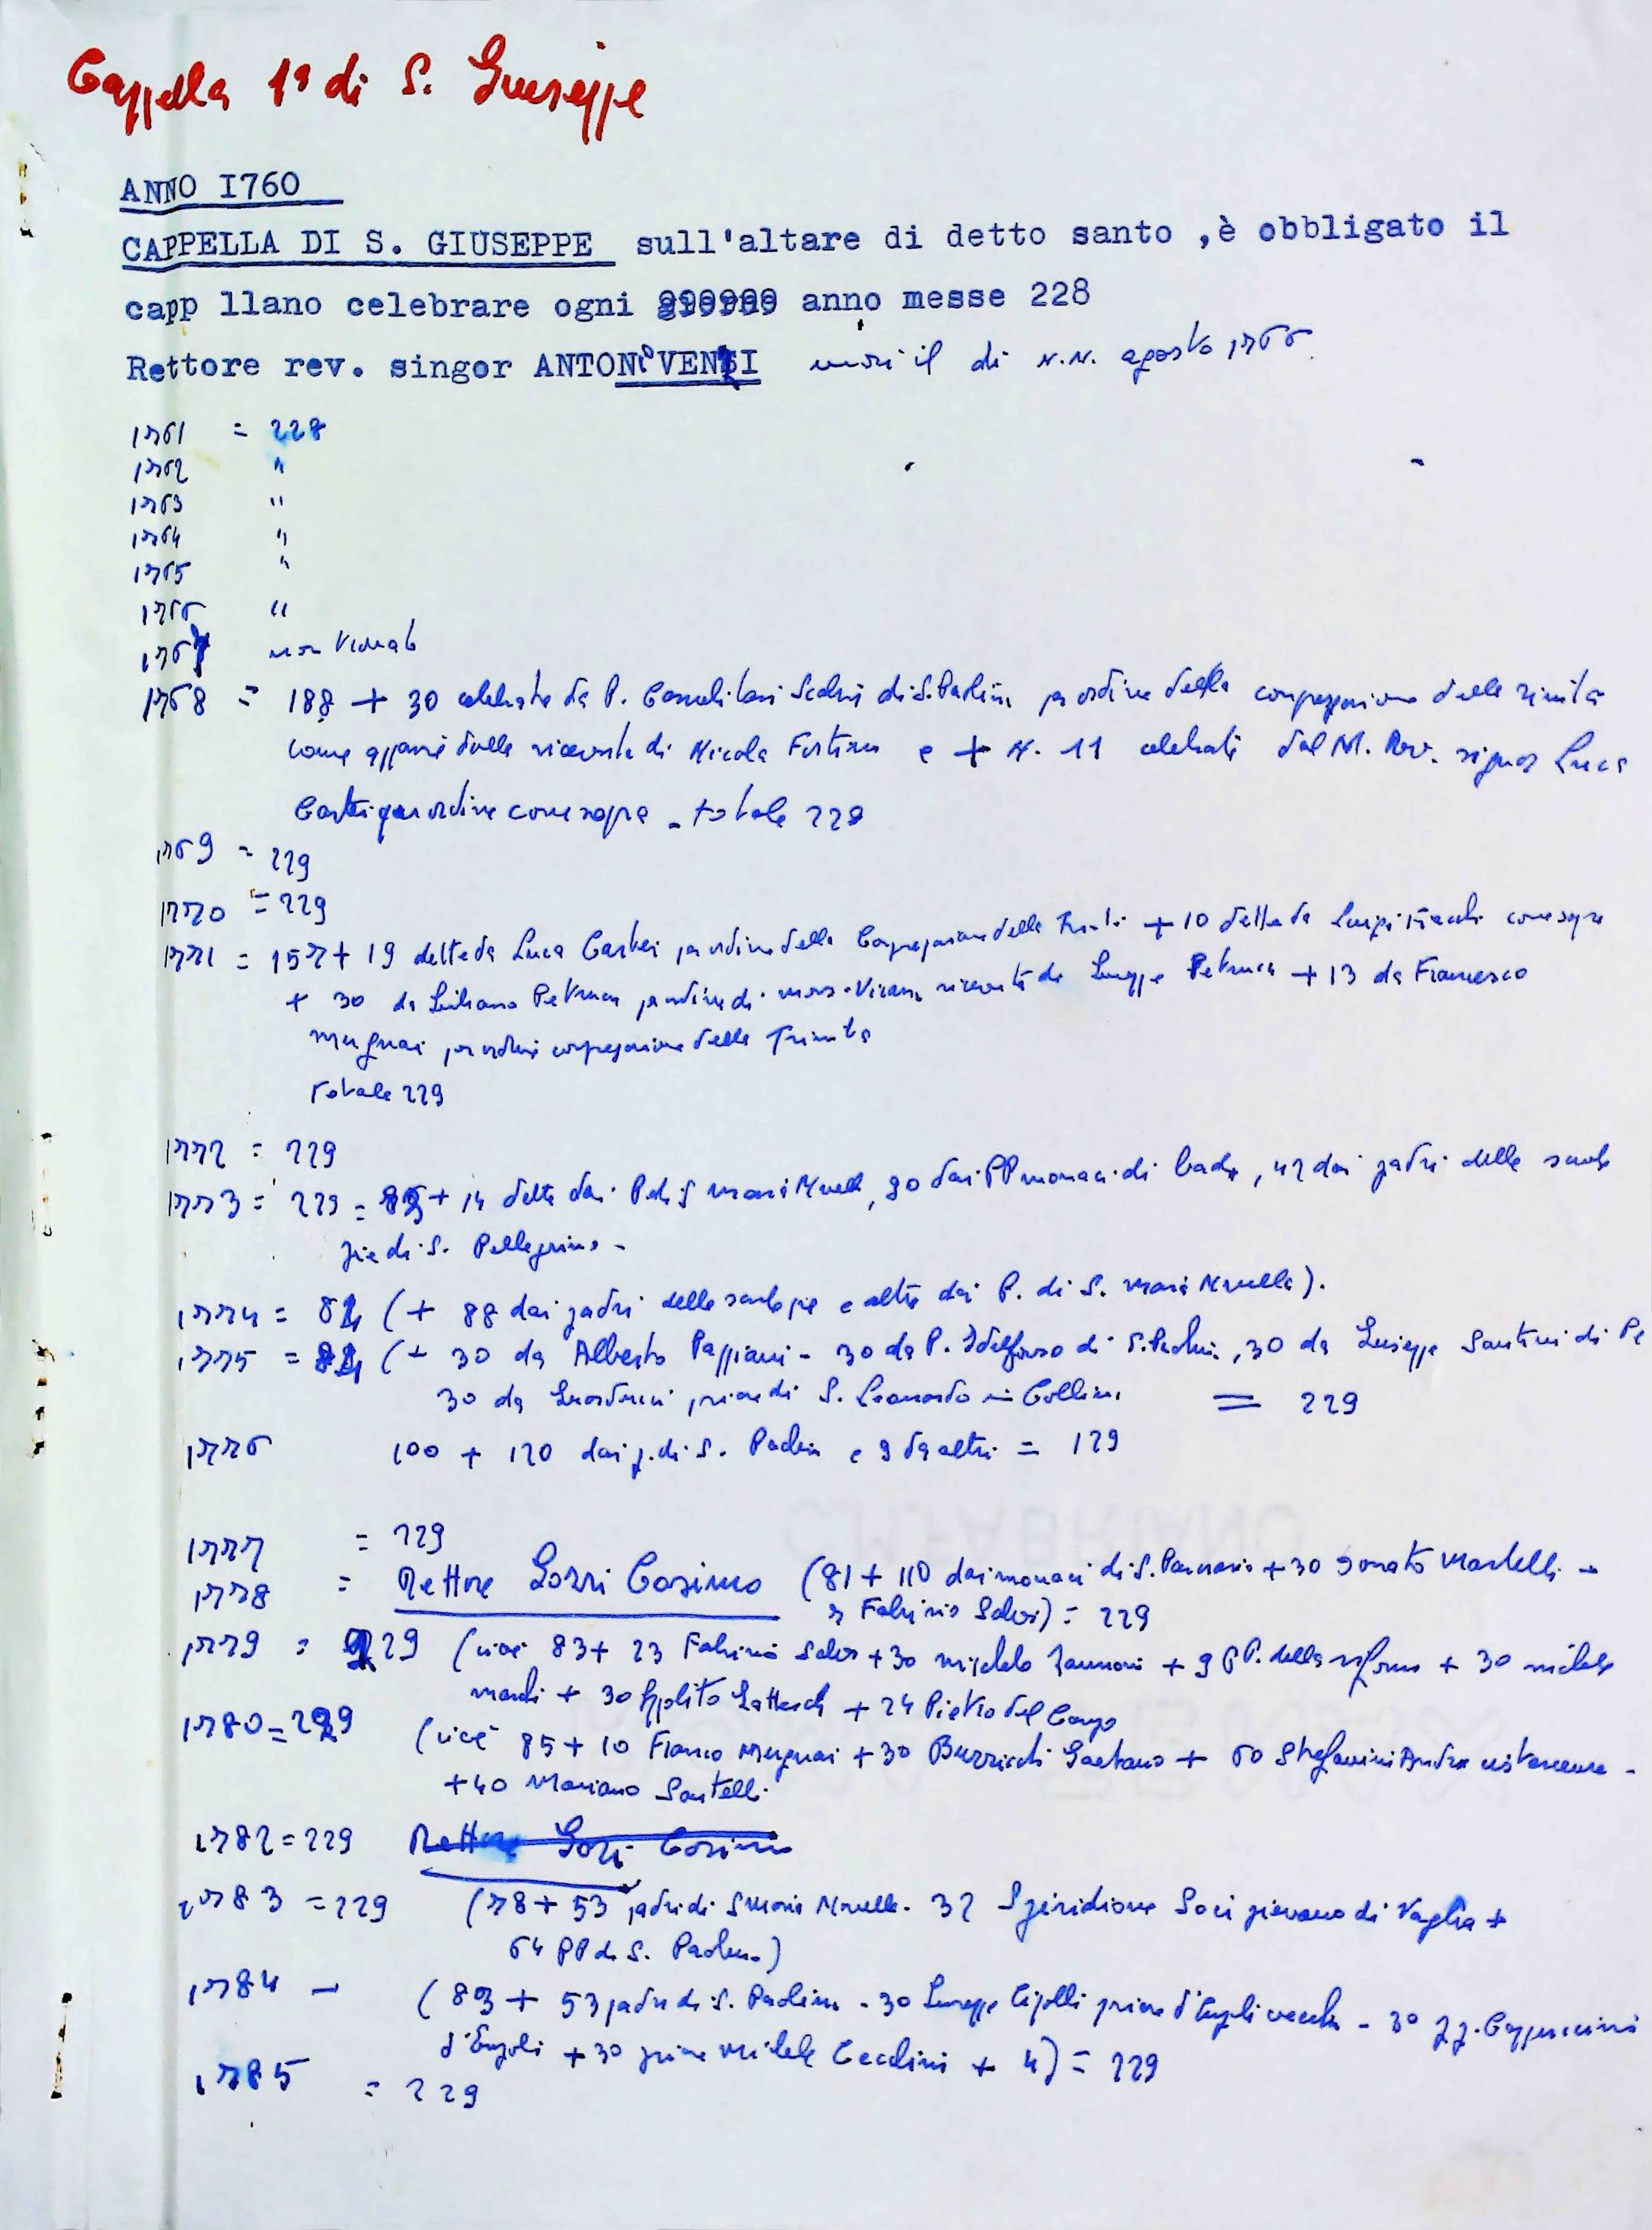 Cappella 1ª di S. Giuseppe
ANNO I760
CAPPELLA DI S. GIUSEPPE sull'altare di detto santo ,è obbligato il
capp llano celebrare ogni anno messe 228
Rettore rev. singor ANTONIO VENTI morì il dì N.N. agosto 1766.
1761 = 228
1762 "
1763 "
1764 "
1765 "
1766 "
1767 non
1768 = 188 + 30 celebrate da P. di S. Paolino per ordine della congregazione della Trinità
come appare dalla ricevuta di Nicola e + N. 11 celebrate dal M. Rev. signor Luca
per ordine come sopra - totale 229
1769 = 229
1770 = 229
1771 = 157 + 19 dette da Luca per ordine della Congregazione della Trinità + 10 dette da Luigi come sopra
+ 30 da Giuliano Petrucci per ordine di mons. ricevuta da Giuseppe Petrucci + 13 da Francesco
Mugnai per ordine congregazione della Trinità
Totale 229
1772 = 229
1773 = 229 = 85 + 14 dette dai P. di S Maria Novella, 90 dai PP monaci di Badia, 42 dai padri delle scuole
pie di S. Pellegrino -
1774 = 82 (+ 88 dai padri delle scuole pie e altre dai P. di S. Maria Novella).
1775 = (+ 30 da Alberto Pappiani - 30 da P. Idelfonso di S. Paolino, 30 da Giuseppe Santini di Pe
30 da Guarducci priore di S. Leonardo in Collina = 229
1776 100 + 120 dai p. di S. Paolino e 9 da altri = 129
1777 = 229
1778 = Rettore Gozzi Cosimo (81 + 110 dai monaci di S. Pancrazio + 30 Donato Martelli -
7 Fabrizio Salvi) = 229
1779 = 229 (cioè 83 + 23 Fabrizio Salvi + 30 Michele Zannoni + 9 PP. della riforma + 30 michele
+ 30 Ippolito + 24 Pietro del Campo
1780 = 229 (cioè 85 + 10 Franco Mugnai + 30 Gaetano + 60 Stefanini Andrea cistercense -
+40 Mariano Santelli
1782 = 229 Rettore Gozi Cosimo
1783 = 229 (78 + 53 padri di S Maria Novella - 32 Spiridione Soci pievano di Vaglia +
64 PP di S. Paolino)
1784 - (83 + 53 padri di S. Paolino - 30 Giuseppe Cipolli priore d'Empoli vecchio - 30 pp. Cappuccini
d'Empoli + 30 priore Michele Cecchini + 4) = 229
1785 = 229